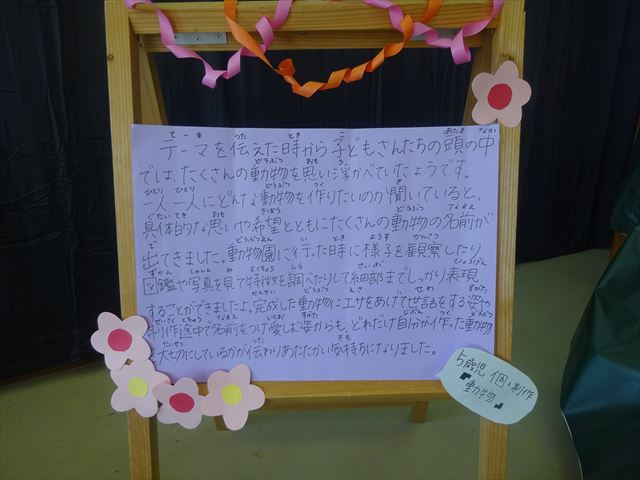 テーマを伝えた時から子どもさんたちの頭の中
では、たくさんの動物を思い浮かべていたようです。
一人一人にどんな動物を作りたいのか聞いていると、
具体的な思いや希望とともにたくさんの動物の名前が
出てきました。動物園に行った時に様子を観察したり
図鑑や写真を見て特徴を調べたりして細部までしっかり表現
することができましたよ。完成した動物にエサをあげて世話をする姿や
制作途中で名前をつけ愛しむ姿からも、どれだけ自分が作った動物を
大切にしているのかが伝わりあたたかい気持ちになりました。
5歳児 個人制作
『動物』